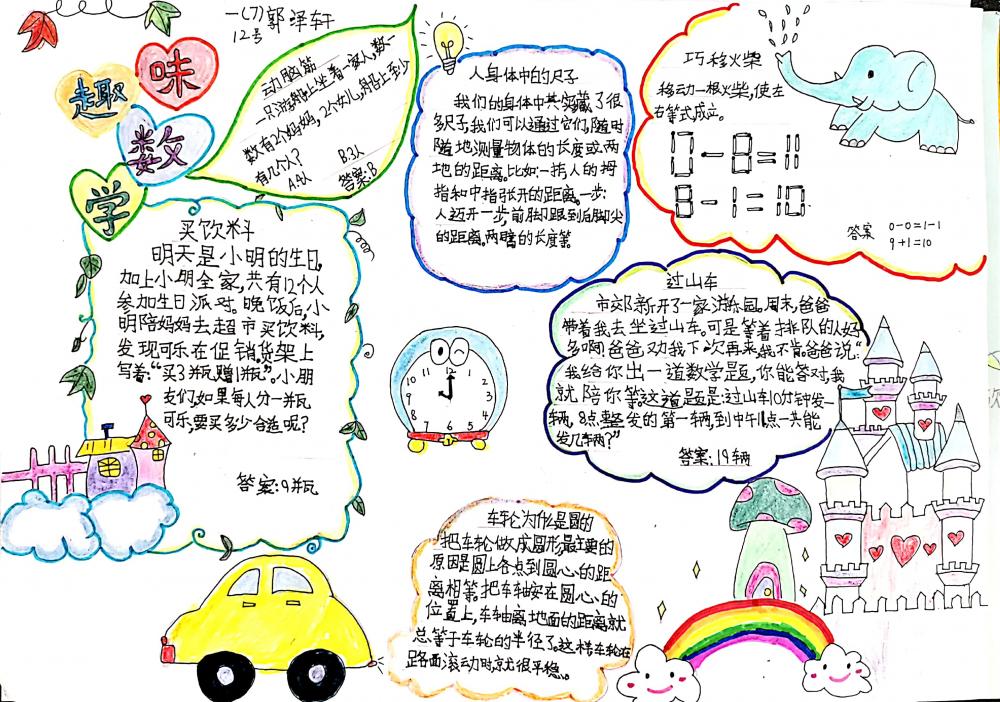 一(7)郭泽轩
12号
趣味数学
动脑筋
一只游船上坐着一家人,数一
数有2个妈妈,2个女儿,船上至少
有几个人?
A.4人 B.3人
答案:B
买饮料
明天是小明的生日,
加上小朋全家,共有12个人
参加生日派对。晚饭后,小
明陪妈妈去超市买饮料,
发现可乐在促销,货架上
写着:“买3瓶赠1瓶”。小朋
友们,如果每人分一瓶
可乐,要买多少合适呢?
答案:9瓶
人身体中的尺子
我们的身体中其实藏了很
多尺子,我们可以通过它们,随时
随地测量物体的长度或两
地的距离。比如:一拃:人的拇
指和中指张开的距离。一步:
人迈开一步前脚跟到后脚尖
的距离。两臂的长度等
巧移火柴
移动一根火柴,使左
右等式成立。
0-8=11
8-1=10
答案 0-0=1-1
9+1=10
过山车
市郊新开了一家游乐园,周末,爸爸
带着我去坐过山车。可是等着排队的人好
多啊!爸爸劝我下次再来,我不肯。爸爸说:“
我给你出一道数学题,你能答对我
就陪你等。这道题是:过山车10分钟发一
辆,8点整发的第一辆,到中午11点一共能
发几车两?”
答案:19辆
12
1
2
3
4
5
6
7
8
9
10
11
车轮为什么是圆的
把车轮做成圆形,最主要的
原因是圆上各点到圆心的距
离相等。把车轴安在圆心的
位置上,车轴离地面的距离就
总等于车轮的半径了。这样车轮在
路面滚动时,就很平稳。